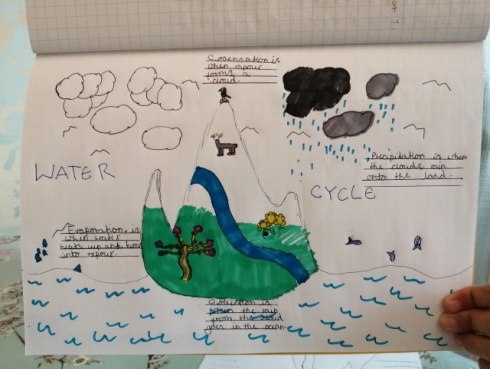 Cosensation is
when vapour
forms a
cloud.
WATER
CYCLE
Precipitation is when
the clouds rain
onto the land.
Evaporation is
when water
up and turns
into vapour.
Collection is
the
from the
goes in the ocean.